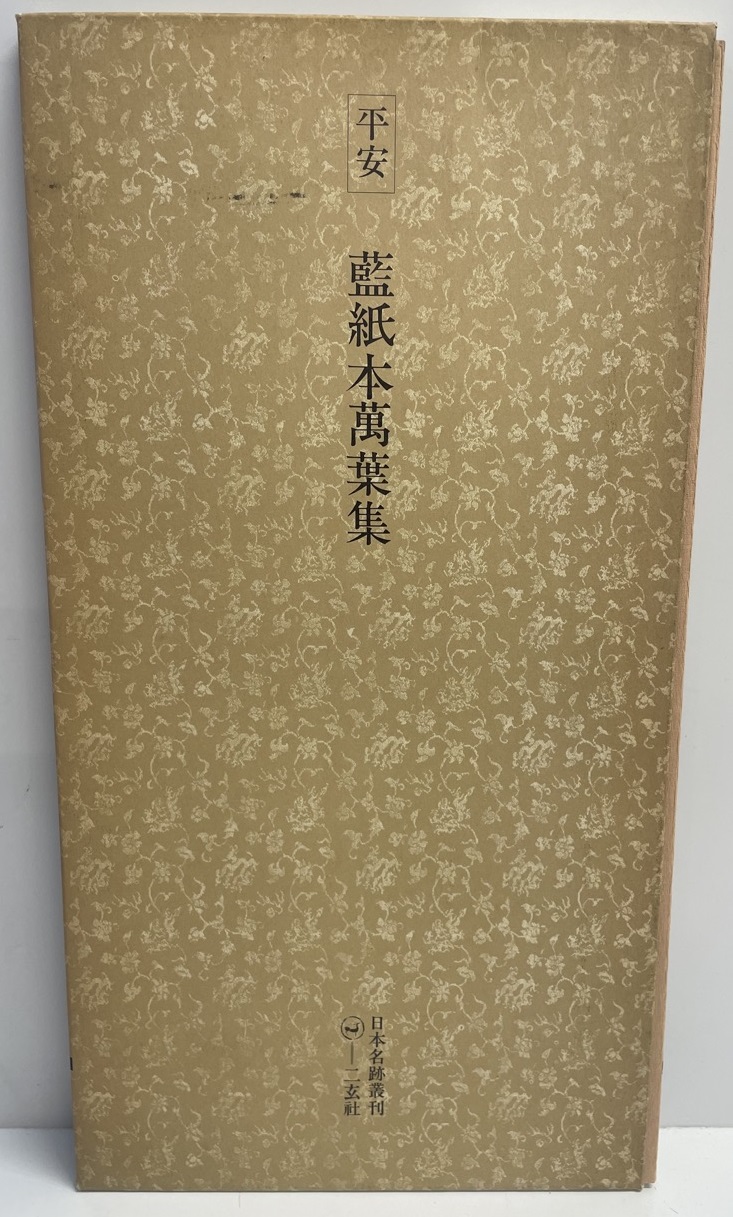 平安
藍紙本萬葉集
日本名跡叢刊
二玄社